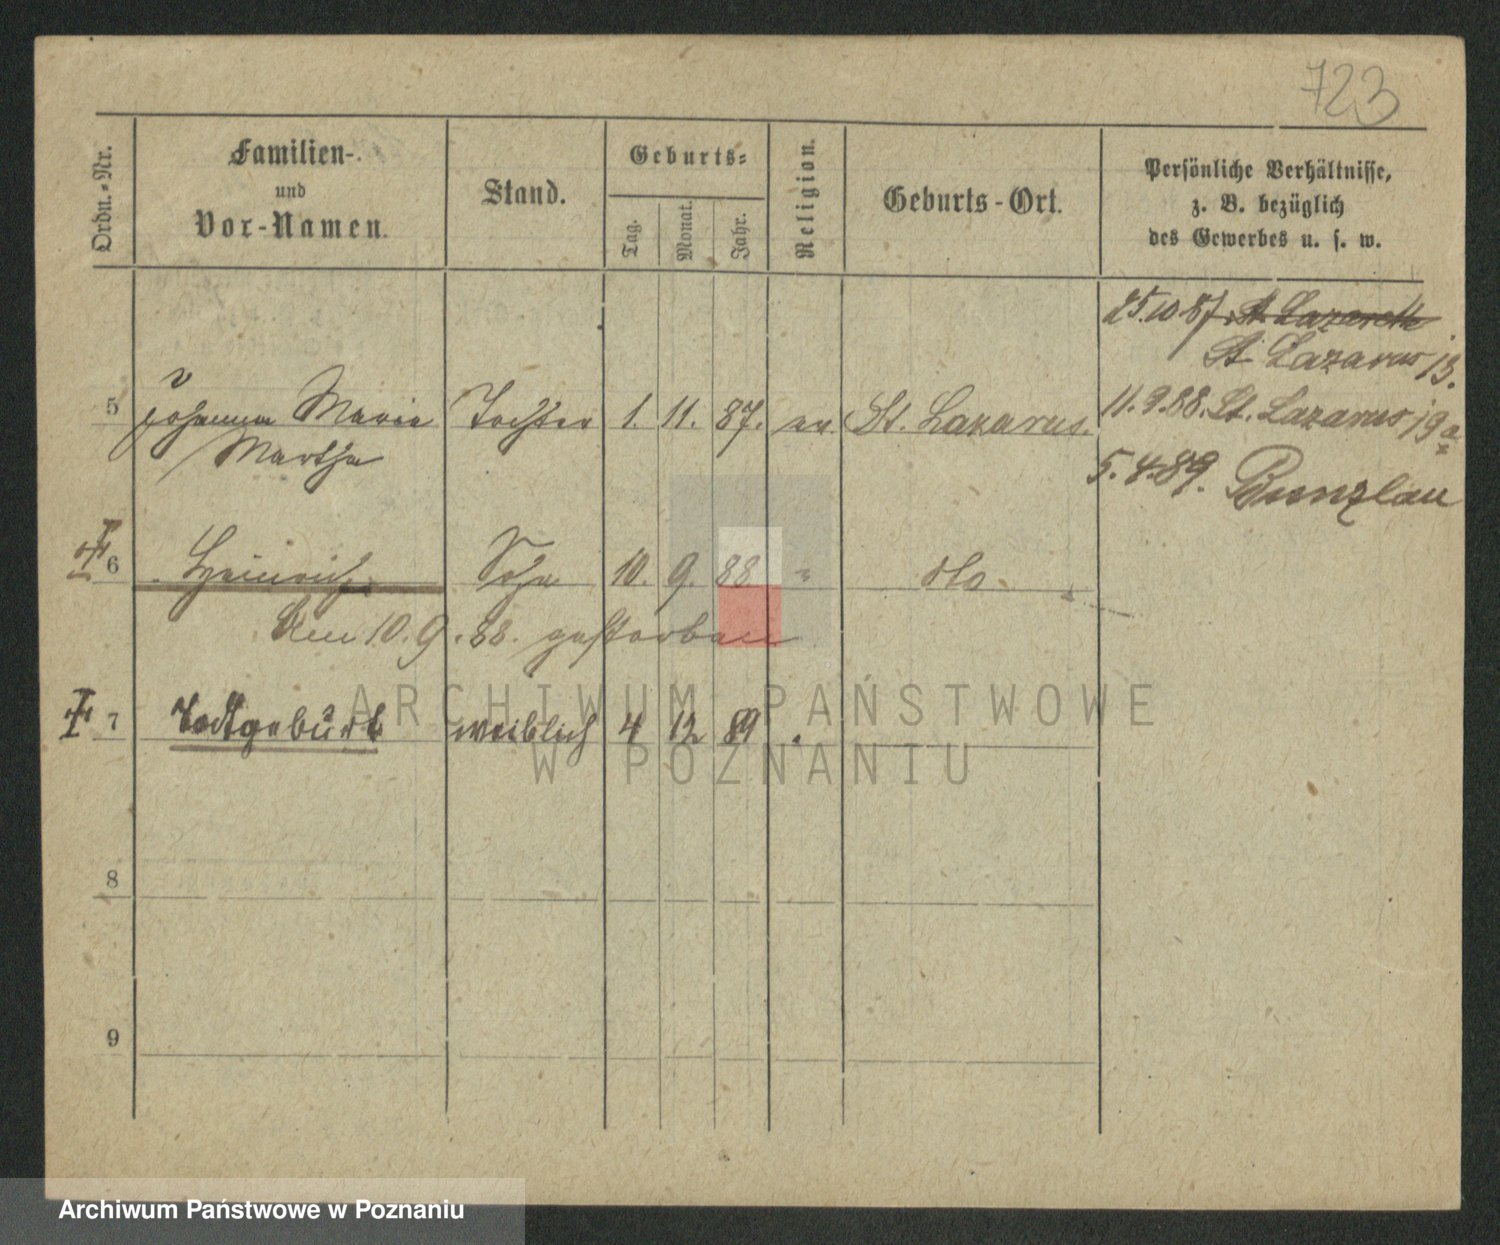 723
Ordn.-Nr.
Familien-
und
Vor-Namen.
Stand.
Geburts-
Tag.
Monat.
Jahr.
Religion.
Geburts-Ort.
Persönliche Verhältnisse,
z. B. bezüglich
des Gewerbes u. s. w.
25.10.87 St. Lazarus
St. Lazarus 13.
5 Johanna Marie Tochter 1. 11. 87. ev. St. Lazarus. 11.9.88. St. Lazarus 19a
Martha
5.4.89. Bunzlau
6 Heinrich Sohn 10. 9. 88 " dto.
Am 10.9.88. gestorben
7 Todtgeburt weiblich 4 12 89
8
9
ARCHIWUM PAŃSTWOWE
W POZNANIU
Archiwum Państwowe w Poznaniu